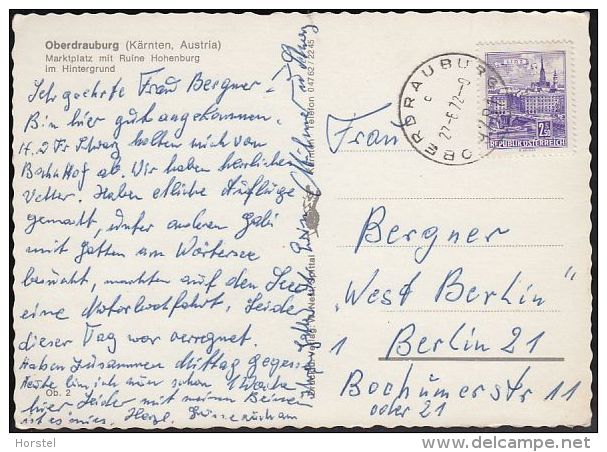 Oberdrauburg (Kärnten, Austria)
Marktplatz mit Ruine Hohenburg
im Hintergrund
Sehr geehrte Frau Bergner
Bin hier gut angekommen.
H. & Fr holten mich vom
Bahnhof ab. Wir haben herrliches
Wetter. Haben etliche Ausflüge
gemacht, unter anderen Gabi
mit Gatten am Wörtersee
besucht, machten auf den See
eine Motorbootfahrt. Leider
dieser Tag war verregnet.
Haben zusammen Mittag gegessen
Heute bin ich nun schon 1 Woche
hier. Leider mit meinen Beinen
ist es mies. Herzl. Grüsse
Ob. 2
Telefon 04762/2245
OBERDRAUBURG
22-6.72-9
LINZ
2.50
REPUBLIK ÖSTERREICH
Frau
Bergner
"West Berlin"
1 Berlin 21
Bochumerstr 11
oder 21
Horstel
www.delcampe.net